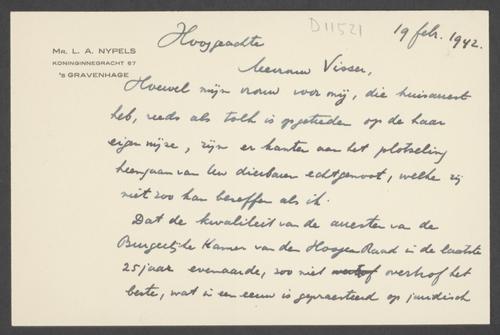 D11521
19 febr. 1942.
MR. L. A. NYPELS
KONINGINNEGRACHT 67
'S GRAVENHAGE
Hooggeachte
Mevrouw Visser,
Hoewel mijn vrouw voor mij, die huisarrest
heb, reeds als tolk is opgetreden op de haar
eigen wijze, zijn er kanten aan het plotseling
heengaan van Uw dierbaren echtgenoot, welke zij
niet zoo kan beseffen als ik.
Dat de kwaliteit van de arresten van de
Burgerlijke Kamer van den Hoogen Raad in de laatste
25 jaar evenaarde, zoo niet overtrof het
beste, wat in een eeuw is gepraesteerd op juridisch